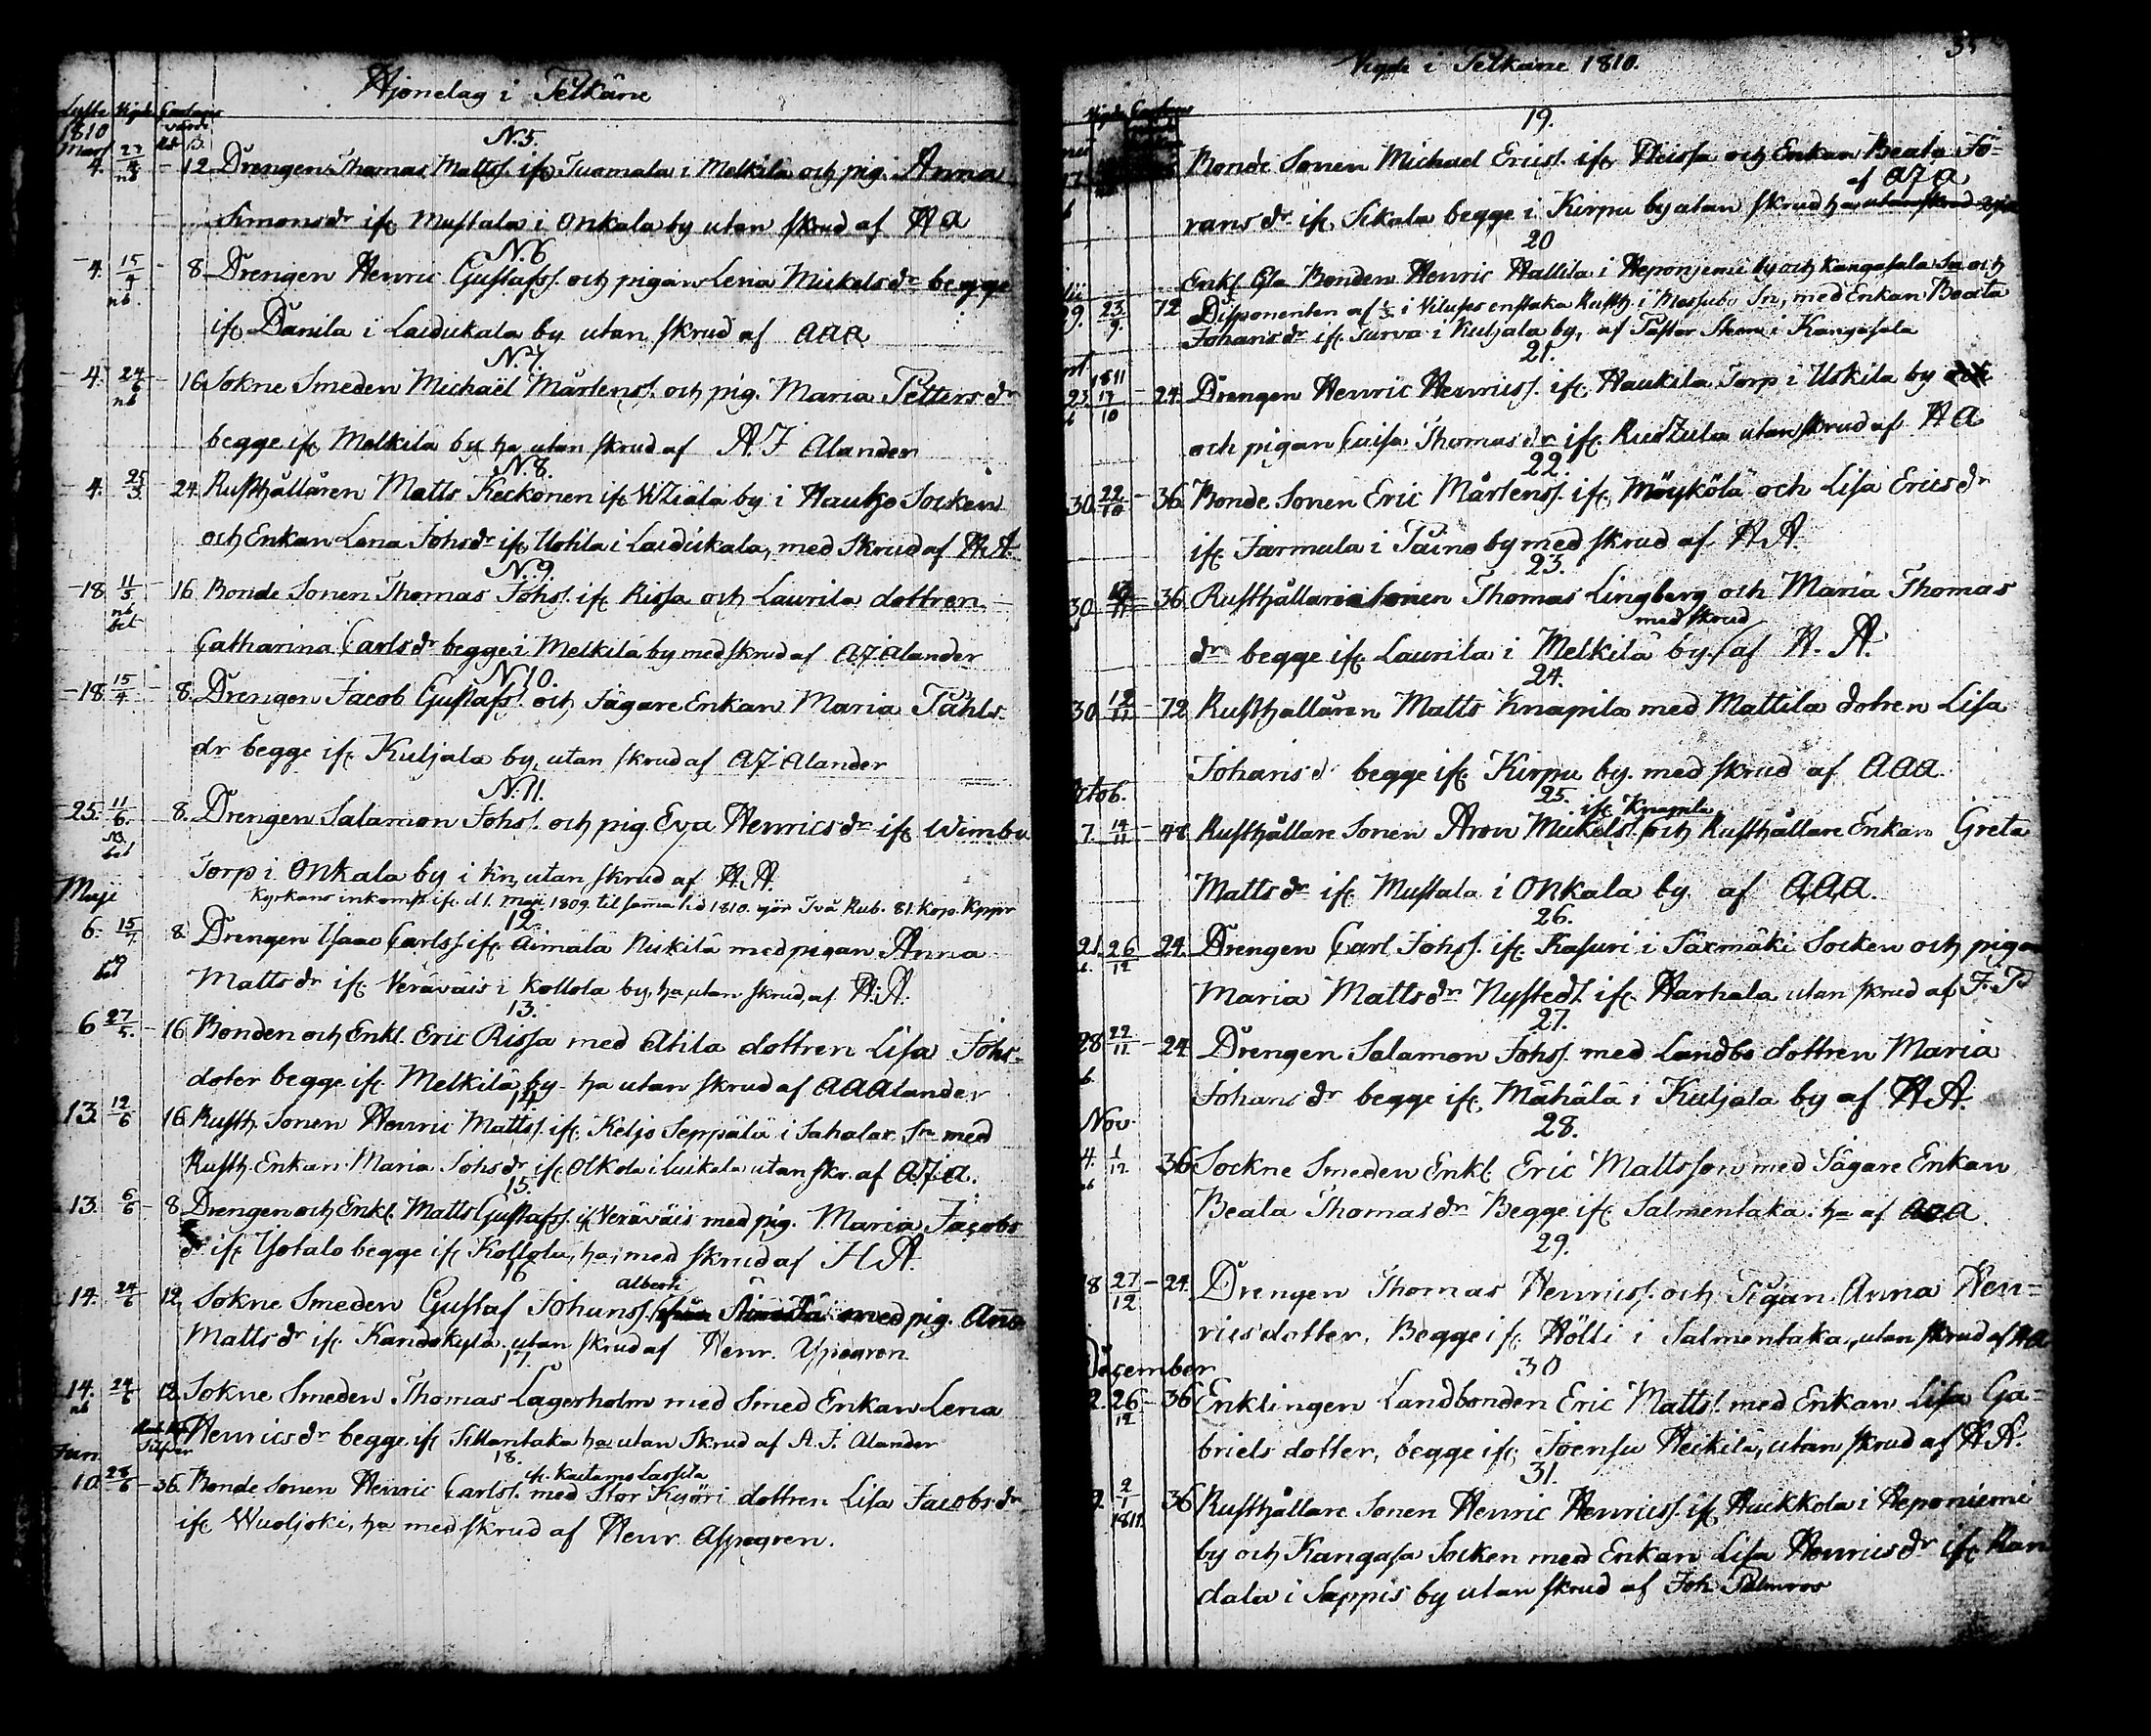 Hjonelag i Pelkäne
Lyste Vigde
1810 värde
Mars N. 5.
4. 23/4 nb - 12 Drengen Thomas Mattss. ifr. Tuomala i Melkilä och pig. Anna
Simonsdr ifr Mustala i Onkala by utan skrud af HA
N. 6
- 4. 15/4 nb. - 8 Drengen Henric Gustafss. och pigan Lena Mickelsdr begge
ifr Danila i Laidukala by utan skrud af AAA
N. 7.
- 4. 24/6 nb - 16 Sokne Smeden Michaël Mårtenss. och pig. Maria Pettersdr
begge ifr Melkilä by ha utan skrud af A J Alander
N. 8.
- 4. 25/3. - 24 Rusthållaren Matts Keckonen ifr by i Hauho Socken
och Enkan Lena Johsdr ifr Uotila i Laidikala, med Skrud af HA
N. 9.
- 18 11/5 nb bet 16 Bonde Sonen Thomas Johss. ifr Rissa och Laurila dottren
Catharina Carlsdr begge i Melkilä by med skrud af AJ Alander
N 10.
- 18. 15/4 - 8. Drengen Jacob Gustafss. och Jägare Enkan Maria Påhls-
dr begge ifr Kuljala by, utan skrud af AJ Alander
N. 11.
- 25. 11/6. bet 8. Drengen Salamon Johss. och pig Eva Henricsdr ifr Wimbu
Torp i Onkala by i kn, utan skrud af HA.
Maji Kyrkans inkomst ifr. d 1. Maji 1809. til samma tid 1810. gör Två Rub. 81. Kop. Kppr
12.
6. 15/7 bet 8. Drengen Isaac Carlss. ifr Aimälä Nickilä med pigan Anna
Mattsdr ifr Veräväis i Kollola by, ha utan skrud, af HA.
13.
6 27/5. - 16 Bonden och Enkl. Eric Rissa med Atila dottren Lisa Johs-
doter begge ifr Melkilä by - ha utan skrud af AAAlander
14
13. 12/6 16 Rusth. Sonen Henric Mattss. ifr Keljo Seppälä i Sahalax Sn med
Rusth. Enkan Maria Johsdr ifr Olkola i Luikala utan skr. af AJA.
15.
13. 6/6 - 8 Drengen och Enkl. Matts Gustafss. ifr Veräväis med pig. Maria Jacobs
dr ifr Isotalo begge ifr Kollola, ha, med skrud af HA.
16
14. 24/6 12 Sokne Smeden Gustaf Johanss. Alberti med pig. Anna
Mattsdr ifr Kandokylä utan skrud af Henr. Aspegren
17.
14. nb 24/6 12 Sokne Smeden Thomas Lagerholm med Smed Enkan Lena
Henricsdr begge ifr Sillantaka ha utan Skrud af A. J. Alander
Jun. 18.
10. 28/6 - 36. Bonde Sonen Henric Carlss. ifr. Kaitamo Lassila med Stor Kyöri dottren Lisa Jacobsdr
ifr Wuoljoki, ha med skrud af Henr. Aspegren.
Vigde i Pelkäne 1810.
19.
Bonde Sonen Michael Ericss. ifr Heissa och Enkan Beata Jö-
ransdr ifr Sikala begge i Kirpu by utan skrud ha af AJA
20
Enkl. Gla Bonden Henric Hallila i Heponjemi by och Kangasala Sn och
29. 23/9. 72 Disponenten af 1/2 i Vilusis enstaka Rusth. i Messuby Sn, med Enkan Beata
Johansdr ifr Turva i Kuljala by, af Pastor i Kangasala
21.
23. 1811 17/10 - 24. Drengen Henric Henricss. ifr. Haukila Torp i Uskila by
och pigan Caisa Thomasdr ifr. utan skrud af HA
22.
30. 22/10 - 36 Bonde Sonen Eric Mårtenss. ifr. Möykölä och Lisa Ericsdr
ifr Jarmula i Päino by med skrud af HA.
23.
30 36 Rusthållaresonen Thomas Lingberg och Maria Thomas
dr begge ifr. Laurila i Melkilä by. med skrud af H. A.
24.
30 12/11 - 72 Rusthållaren Matts Knapila med Mattila dotren Lisa
Johansd. begge ifr Kirpu by. med skrud af AAA.
Octob. 25.
7. 14/11 - 48 Rusthållare Sonen Aron Mickelss. ifr Knapila och Rusthållare Enkan Greta
Mattsdr ifr Mustala i Onkala by af AAA.
26.
21. 26/12 - 24. Drengen Carl Johss. ifr. Kasuri i Säxmäki Socken och pigan
Maria Mattsdr Nystedt ifr Harhala utan skrud af
27.
28 22/11 - 24 Drengen Salamon Johss. med Landbo dottren Maria
Johansdr begge ifr Mähälä i Kuljala by af HA.
Nov. 28.
4. 1/12 36 Sockne Smeden Enkl. Eric Mattsson med Jägare Enkan
Beata Thomasdr Begge ifr Salmentaka ha af AAA.
29.
18 27/12 - 24 Drengen Thomas Henricss. och Pigan Anna Hen-
ricsdotter. Begge ifr Hölli i Salmentaka, utan skrud af HA
December 30
2. 26/12 - 36 Enklingen Landbonden Eric Mattss. med Enkan Lisa Ga-
briels dotter, begge ifr Joensu Heikilä, utan skrud af HA.
31.
9. 2/1 1811. 36 Rusthållare Sonen Henric Henricss. ifr Huckkola i Heponiemi
by och Kangasa Socken med Enkan Lisa Henricsdr ifr Kan
dala i Sappis by utan skrud af Joh. Palmroos